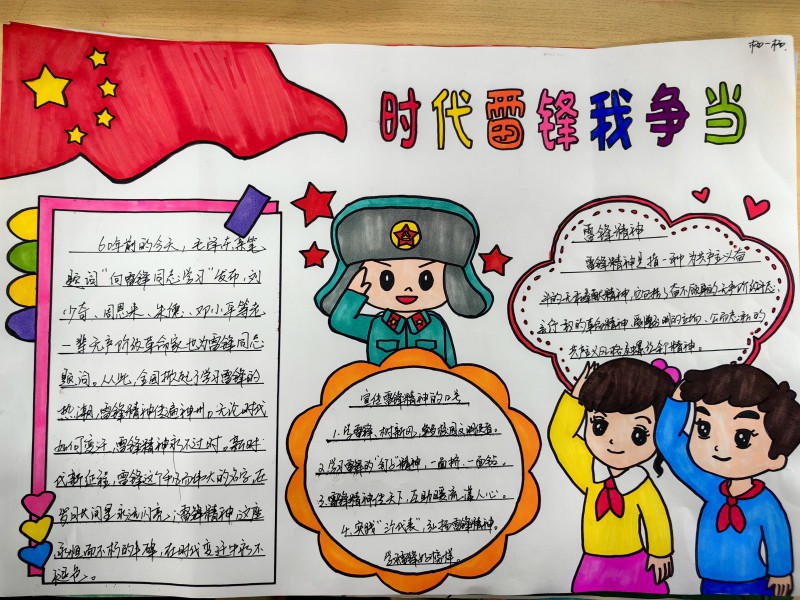 时代雷锋我争当
60年前的今天，毛泽东亲笔
题词"向雷锋同志学习"发布，刘
少奇、周恩来、朱德、邓小平等老
一辈无产阶级革命家也为雷锋同志
题词。从此，全国掀起了学习雷锋的
热潮，雷锋精神传遍神州。无论时代
如何变迁，雷锋精神永不过时。新时
代新征程，雷锋这个平凡而伟大的名字，在
岁月长河里永远闪亮；雷锋精神，这座
永恒而不朽的丰碑，在时代变迁中永不
褪色。
宣传雷锋精神的口号
1.学雷锋，树新风，
2.学习雷锋的"钉子"精神，一面挤，一面钻。
3.雷锋精神传天下，互助暖流满人心。
4.实践"三个代表"，弘扬雷锋精神。
学习雷锋好榜样。
雷锋精神
雷锋精神是指一种为共产主义奋
斗的无私奉献精神，
共产主义风格